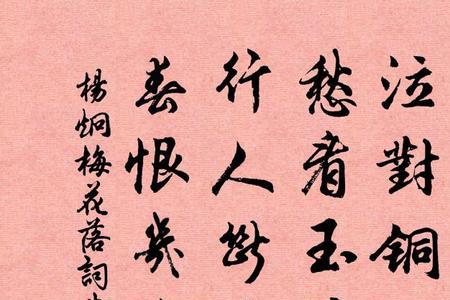 泣對銅
愁看玉
行人斷
春恨幾
楊炯梅花落詞